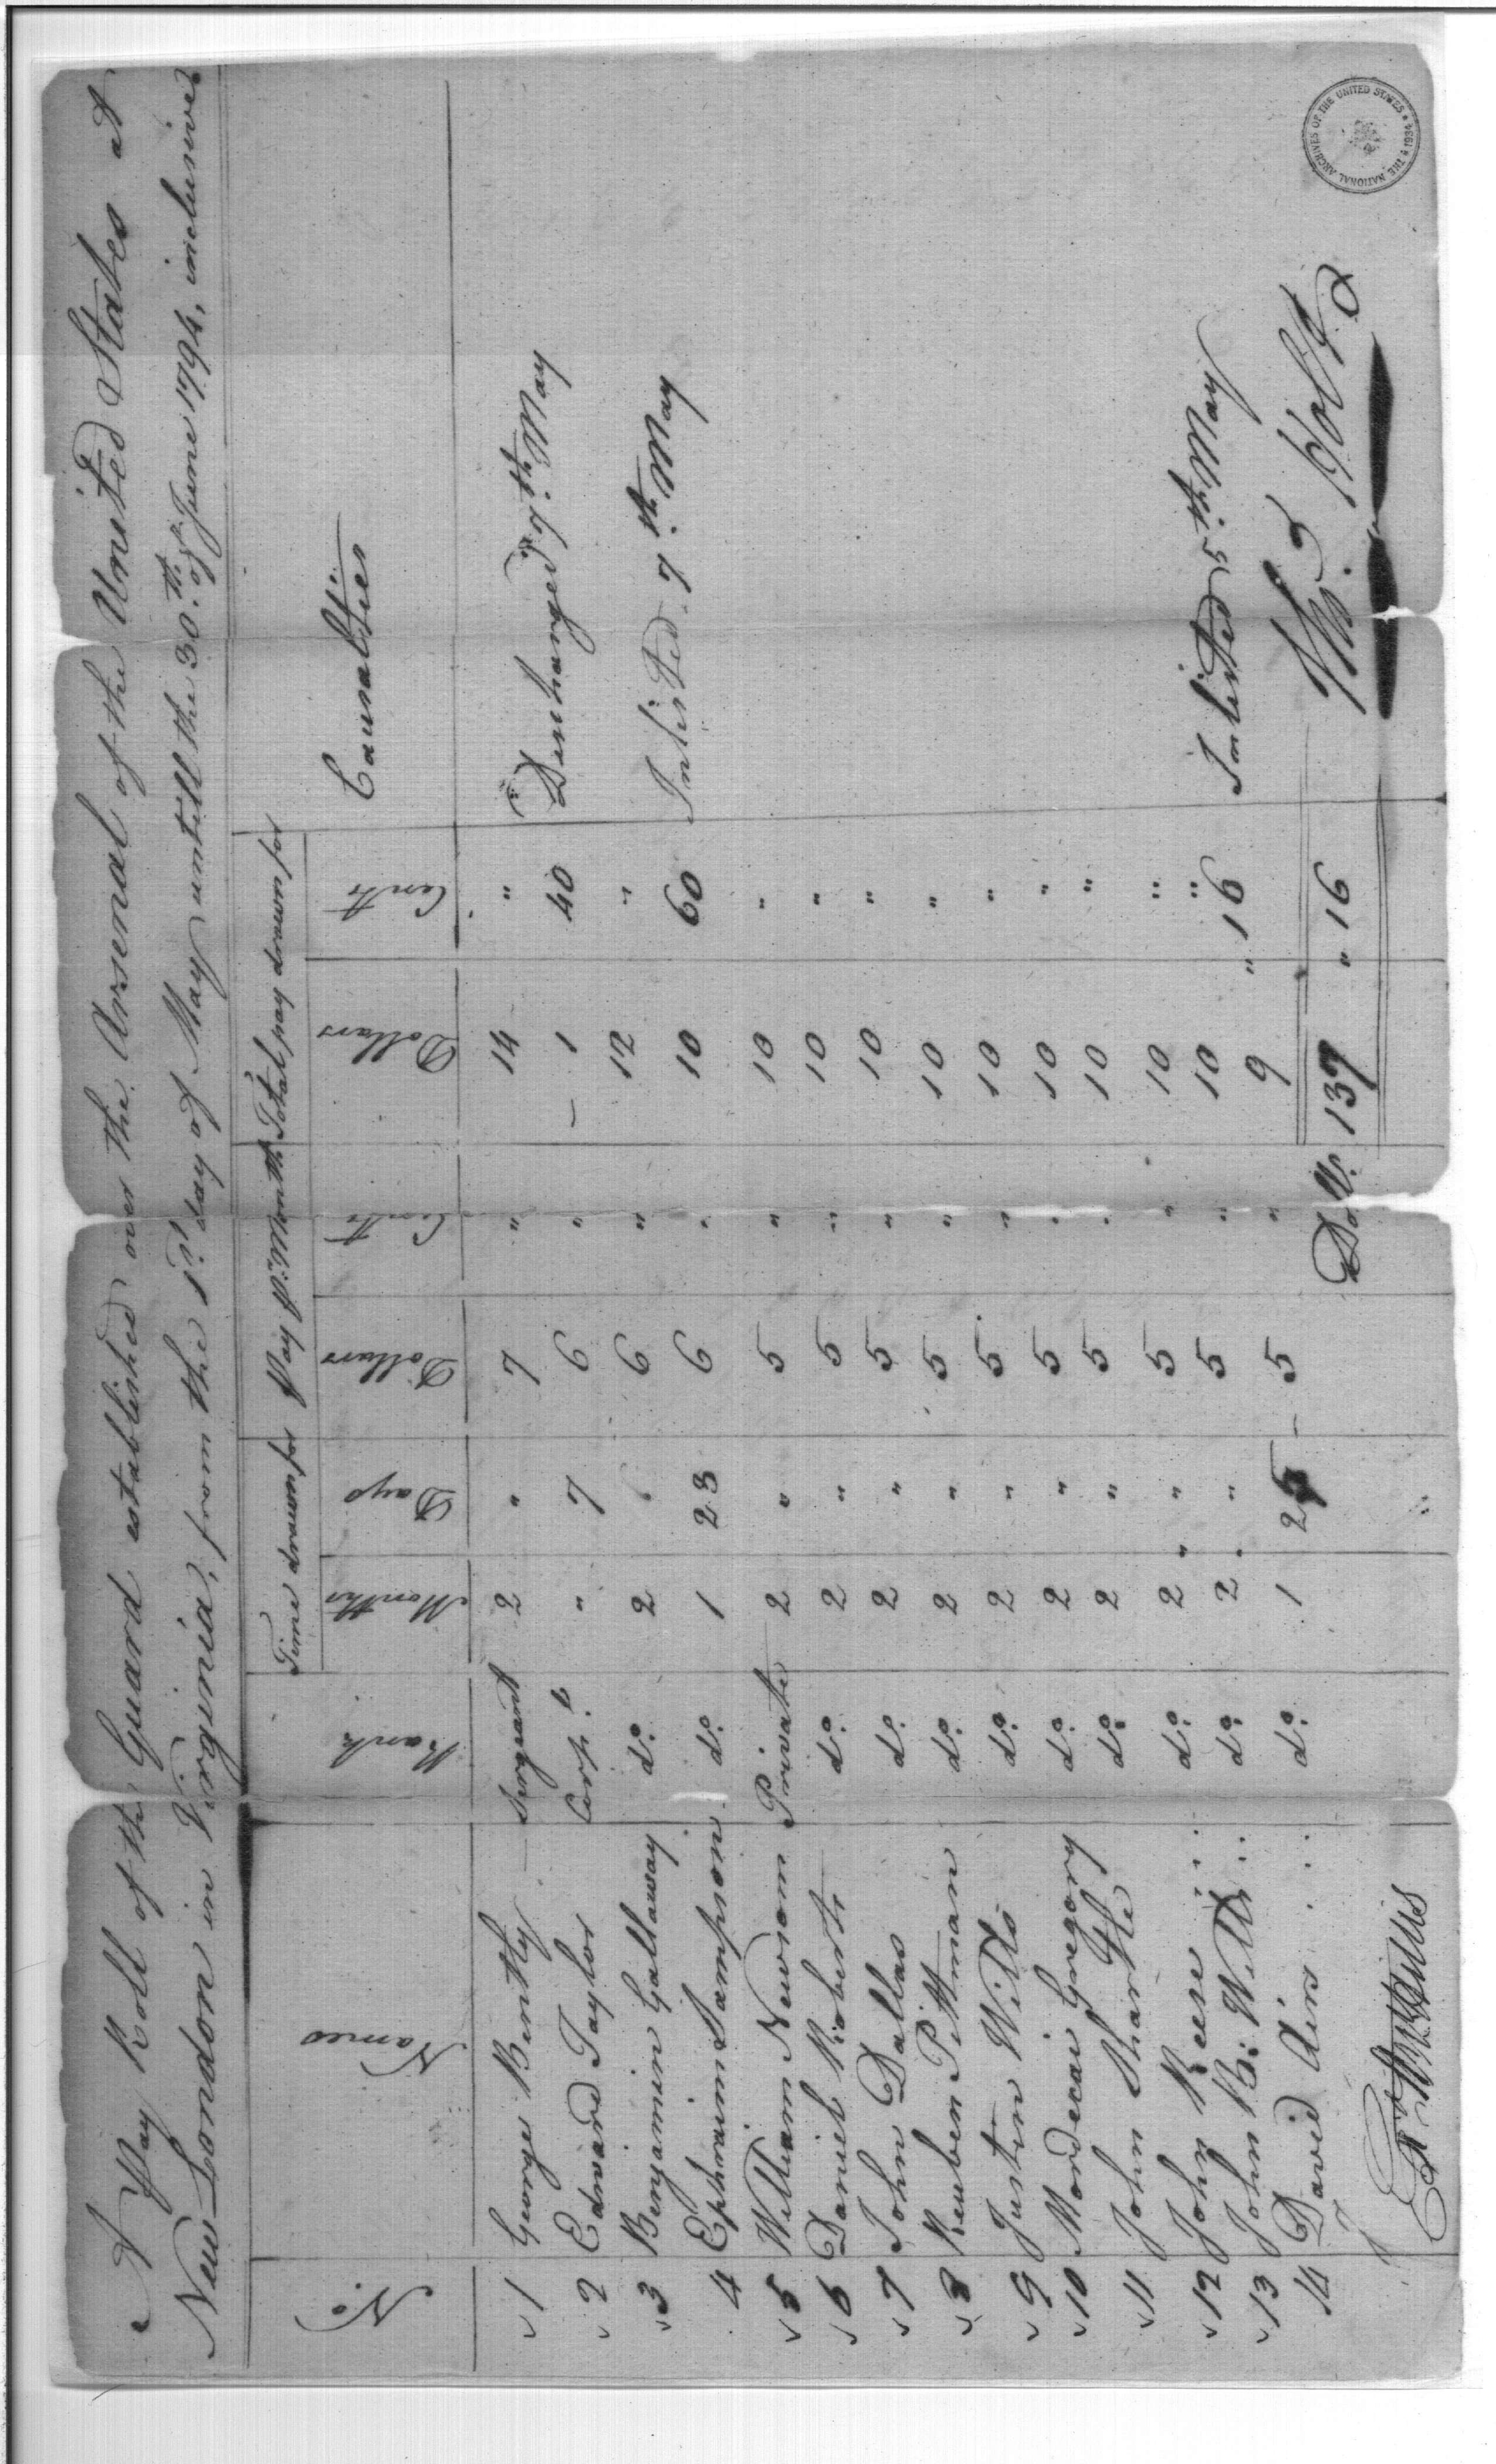 A Pay Roll of the Guard established over the Arsenal of the United States at
New London in Virginia, from the 1st day of May untill the 30.th of June 1794, inclusive
No. Names Rank Time drawn for Pay pr. Month Total pay drawn for Casualties
Months Days Dollars Cents Dollars Cents
1 George Bently Sergeant 2 " 7 " 14 "
2 Edward Taylor Corp.l " 7 6 " 1 40 Discharged 7.th May
3 Benjamin Gallaway do. 2 6 " 12 "
4 Ephraim Sampson do. 1 23 6 " 10 60 Inlisted 7.th May
5 William Newsom Private 2 " 5 " 10 "
6 Daniel Roberts do. 2 " 5 " 10 "
7 John Dallas do. 2 " 5 " 10 "
8 Reuben Pittman do. 2 " 5 " 10 "
9 Justin Wills do. 2 " 5 " 10 "
10 Mordecai Gregory do. 2 " 5 " 10 "
11 John Sharpe do. 2 " 5 " 10 "
12 John Reese do. 2 " 5 " 10 "
13 John B. Wills do. 2 " 5 " 10 "
14 David Airs do. 1 25 5 " 9 " 16 Inlisted 5.th May
Dolls. 137 " 16
THE NATIONAL ARCHIVES OF THE UNITED STATES 1934